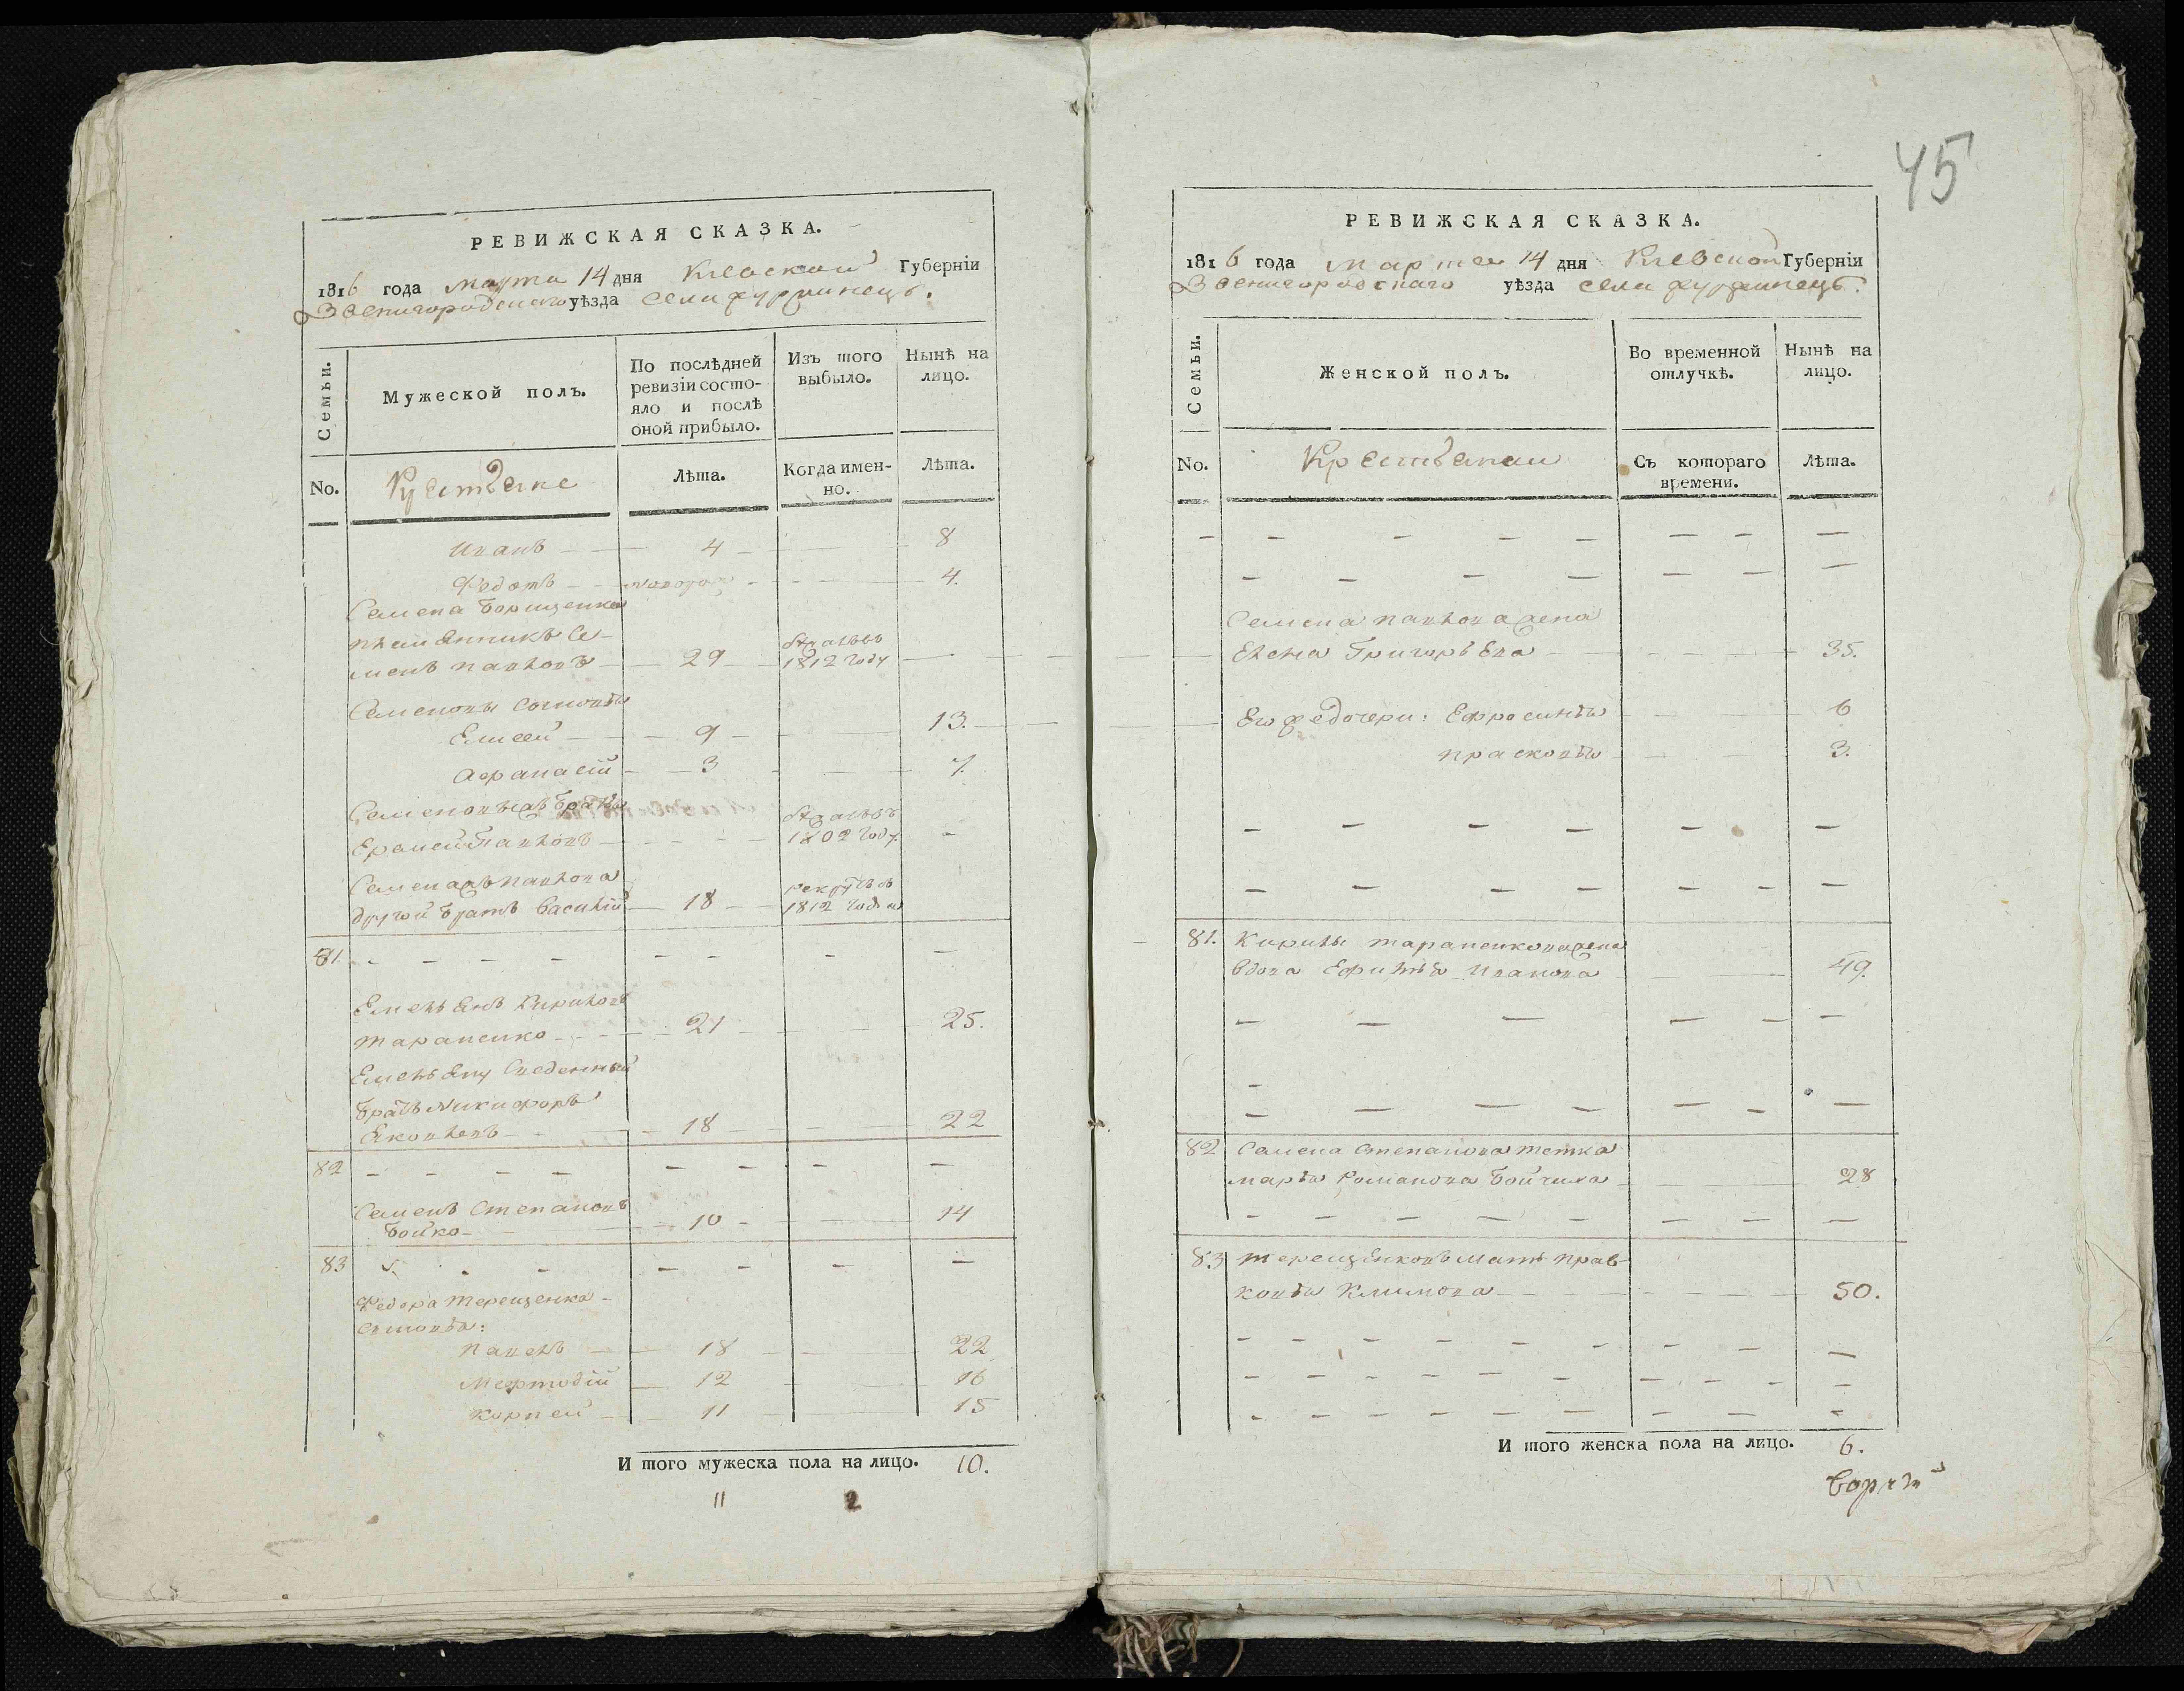 РЕВИЖСКАЯ СКАЗКА.
1816 года марта 14 дня Киевской Губерніи
Звенигородскаго уѣзда села фурманець.
Семьи.
Мужеской полъ.
По послѣдней ревизіи состояло и послѣ оной прибыло.
Изъ того выбыло.
Нынѣ на лицо.
No.
Крестьяне
Лѣта.
Когда именно.
Лѣта.
Иванъ 4 8
Федотъ 4.
Семена Борищенка
племянникъ Се-
менъ Павловъ 29 1812 году
Семеновы сыновья
Елисей 9 13.
Афанасій 3 7.
Семеновъ братъ
Еремей Павловъ 1802 году
Семена Павлова
другой братъ Василій 18 рекрутъ въ 1812 году
81.
Емельянъ Кириловъ
Тараненко 21 25.
Емельяну сведенный
братъ Никифоръ
Яковлевъ 18 22
82
Семенъ Степановъ
Бойко 10 14
83
Федора Терещенка
сыновья:
Павелъ 18 22
Мефтодій 12 16
Корней 11 15
И того мужеска пола на лицо. 10.
11 2
45
РЕВИЖСКАЯ СКАЗКА.
1816 года марта 14 дня Киевской Губерніи
Звенигородскаго уѣзда села фурманецъ.
Семьи.
Женской полъ.
Во временной отлучкѣ.
Нынѣ на лицо.
No.
Крестьянки
Съ котораго времени.
Лѣта.
Семена Павлова жена
Елена Григорьева 35.
Его же дочери: Ефросинья 6
Прасковья 3.
81. Кирилы Тараненкова жена
вдова Ефимья Иванова 49.
82 Семена Степанова тетка
Марья Романова Бойчиха 28
83 Терещенковъ мать Прас-
ковья Климова 50.
И того женска пола на лицо. 6.